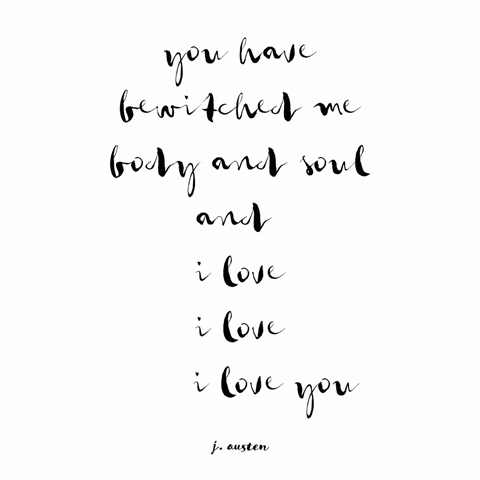 you have
bewitched me
body and soul
and
i love
i love
i love you
j. austen